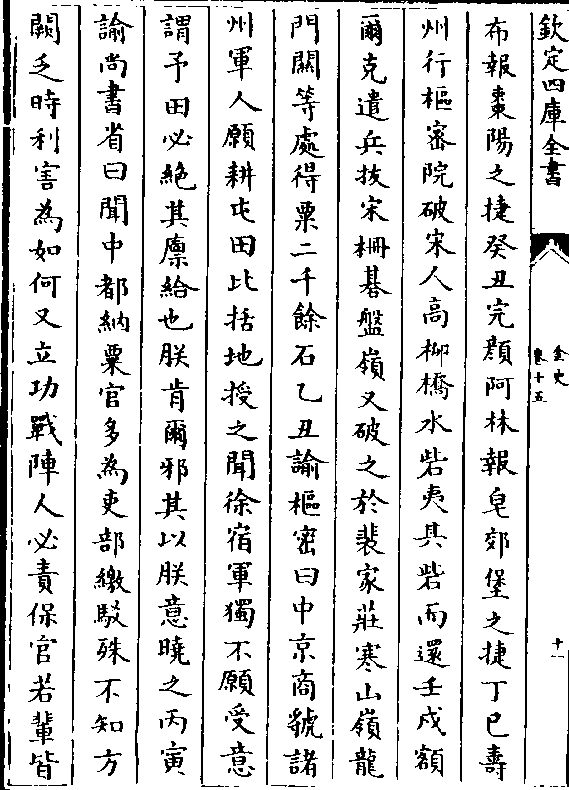 欽定四庫全書
金史
卷十五
十一
布報棗陽之捷癸丑完顏阿林報皂郊堡之捷丁巳壽
州行樞密院破宋人高柳橋水砦夷其砦而還壬戌額
爾克遣兵拔宋柵棊盤嶺又破之於裴家莊寒山嶺龍
門關等處得粟二千餘石乙丑諭樞密曰中京商虢諸
州軍人願耕屯田比括地授之聞徐宿軍獨不願受意
謂予田必絶其廩給也朕肯爾邪其以朕意曉之丙寅
諭尚書省曰聞中都納粟官多為吏部繳駁殊不知方
闕乏時利害為如何又立功戰陣人必責保官若輩皆